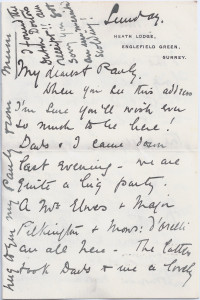 Sunday.
HEATH LODGE,
ENGLEFIELD GREEN,
SURREY.
My dearest Pauly.
When you see this address
I'm sure you'll wish ever
so much to be here!
Dads & I came down
last evening - we are
quite a big party.
A Mrs Elwes & Major
Pilkington & Mons: d'
are all here - The latter
took Dads & me a lovely
hug to you my Pauly from Mum